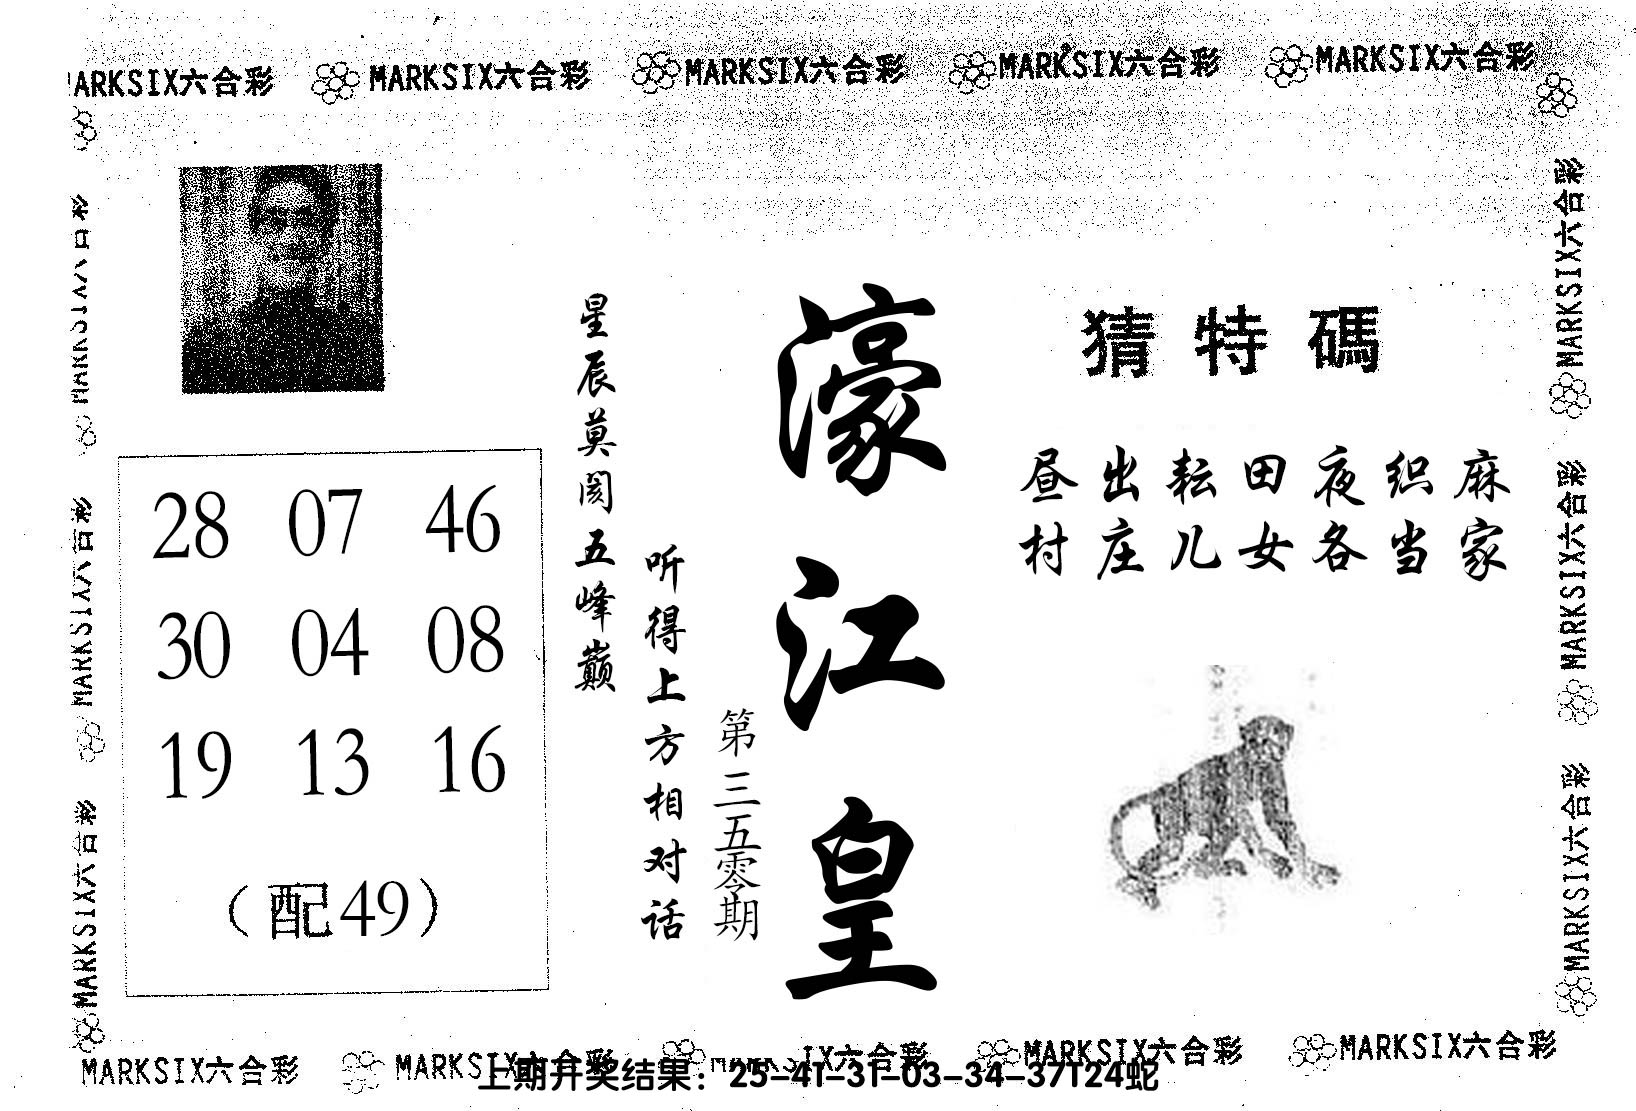 MARKSIX六合彩 MARKSIX六合彩 MARKSIX六合彩 MARKSIX六合彩 MARKSIX六合彩
猜特碼
昼出耘田夜织麻
村庄儿女各当家
濠江皇
第三五零期
星辰莫阂五峰巅
听得上方相对话
28 07 46
30 04 08
19 13 16
（配49）
MARKSIX六合彩
MARKSIX六合彩
MARKSIX六合彩
MARKSIX六合彩
MARKSIX六合彩
MARKSIX六合彩
MARKSIX六合彩 MARKSIX六合彩 MARKSIX六合彩 MARKSIX六合彩 MARKSIX六合彩
上期开奖结果：25-41-31-03-34-37T24蛇